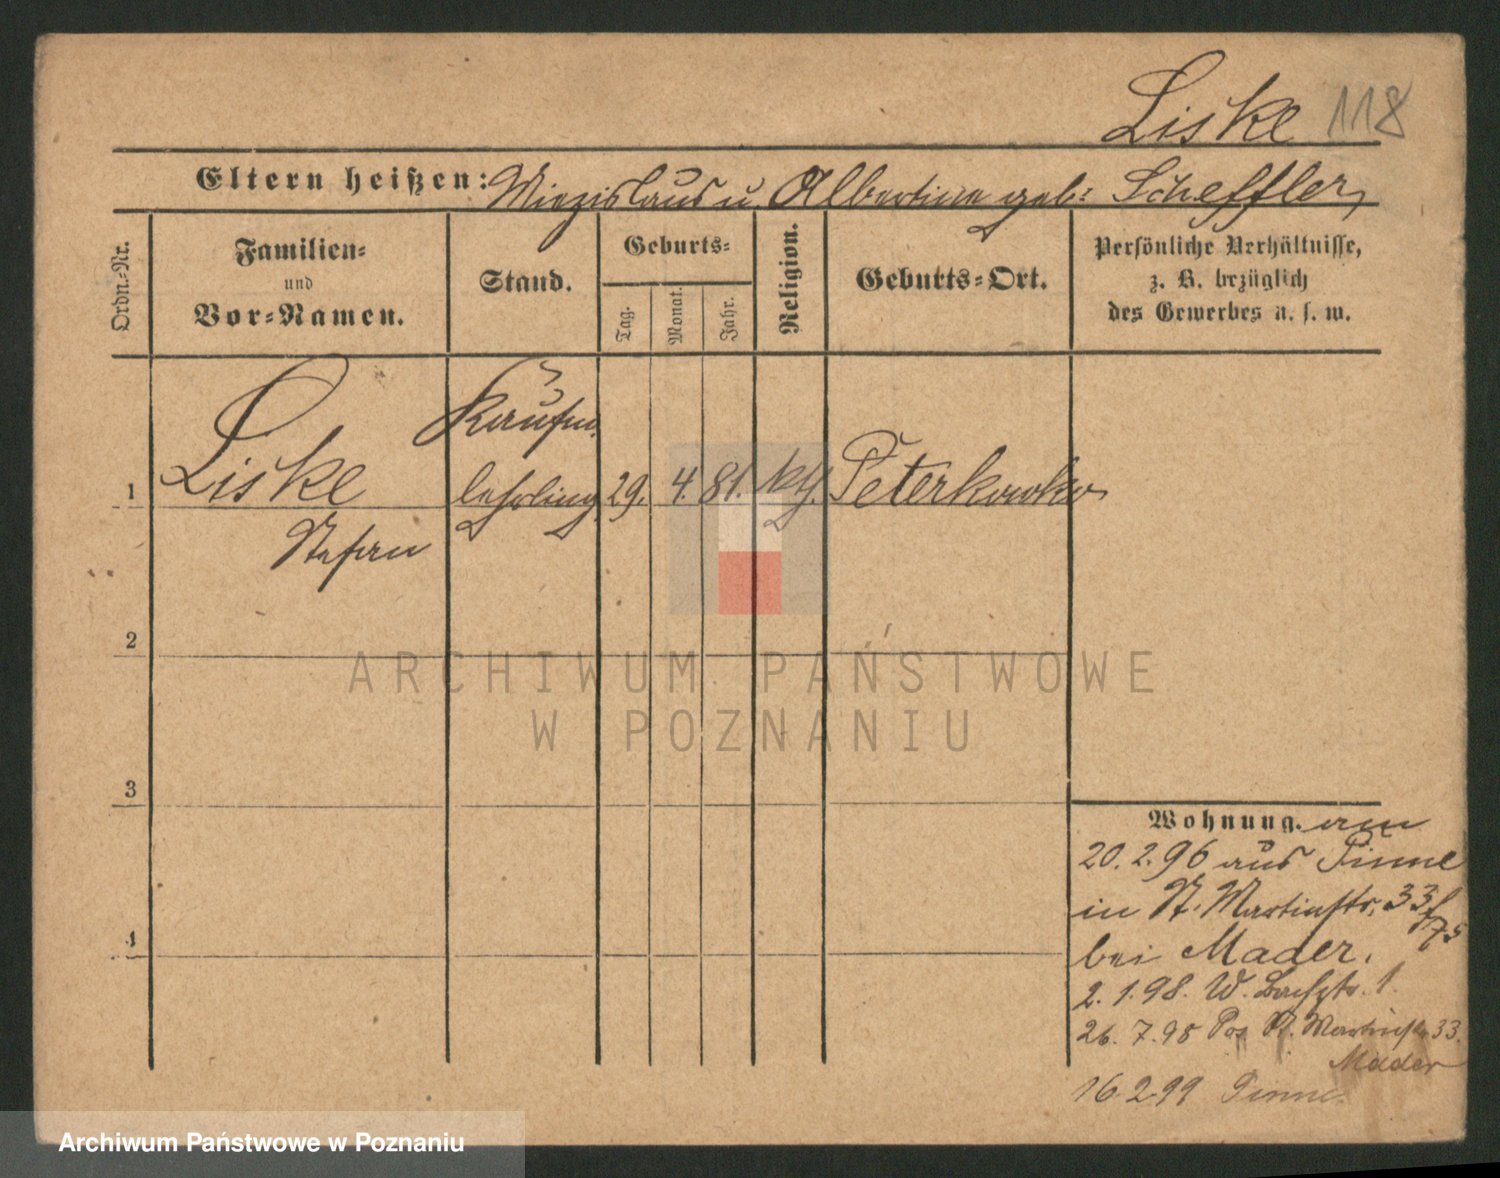 Liske 118
Eltern heißen: Miezislaus u. Albertine geb: Scheffler,
Ordn.-Nr.
Familien-
und
Vor-Namen.
Stand.
Geburts-
Tag.
Monat.
Jahr.
Religion.
Geburts-Ort.
Persönliche Verhältnisse,
z. B. bezüglich
des Gewerbes u. s. w.
Kaufm.
1 Liske lehrling 29. 4. 81. kth. Peterkowko
Stefan
2
3
4
Wohnung. am
20.2.96 aus Pinne
in St. Martinstr. 33
bei Mader.
2.1.98. W. 1.
26.7.98 Pos. St. Martinstr 33.
Mader
16.2.99 Pinne.
ARCHIWUM PAŃSTWOWE
W POZNANIU
Archiwum Państwowe w Poznaniu